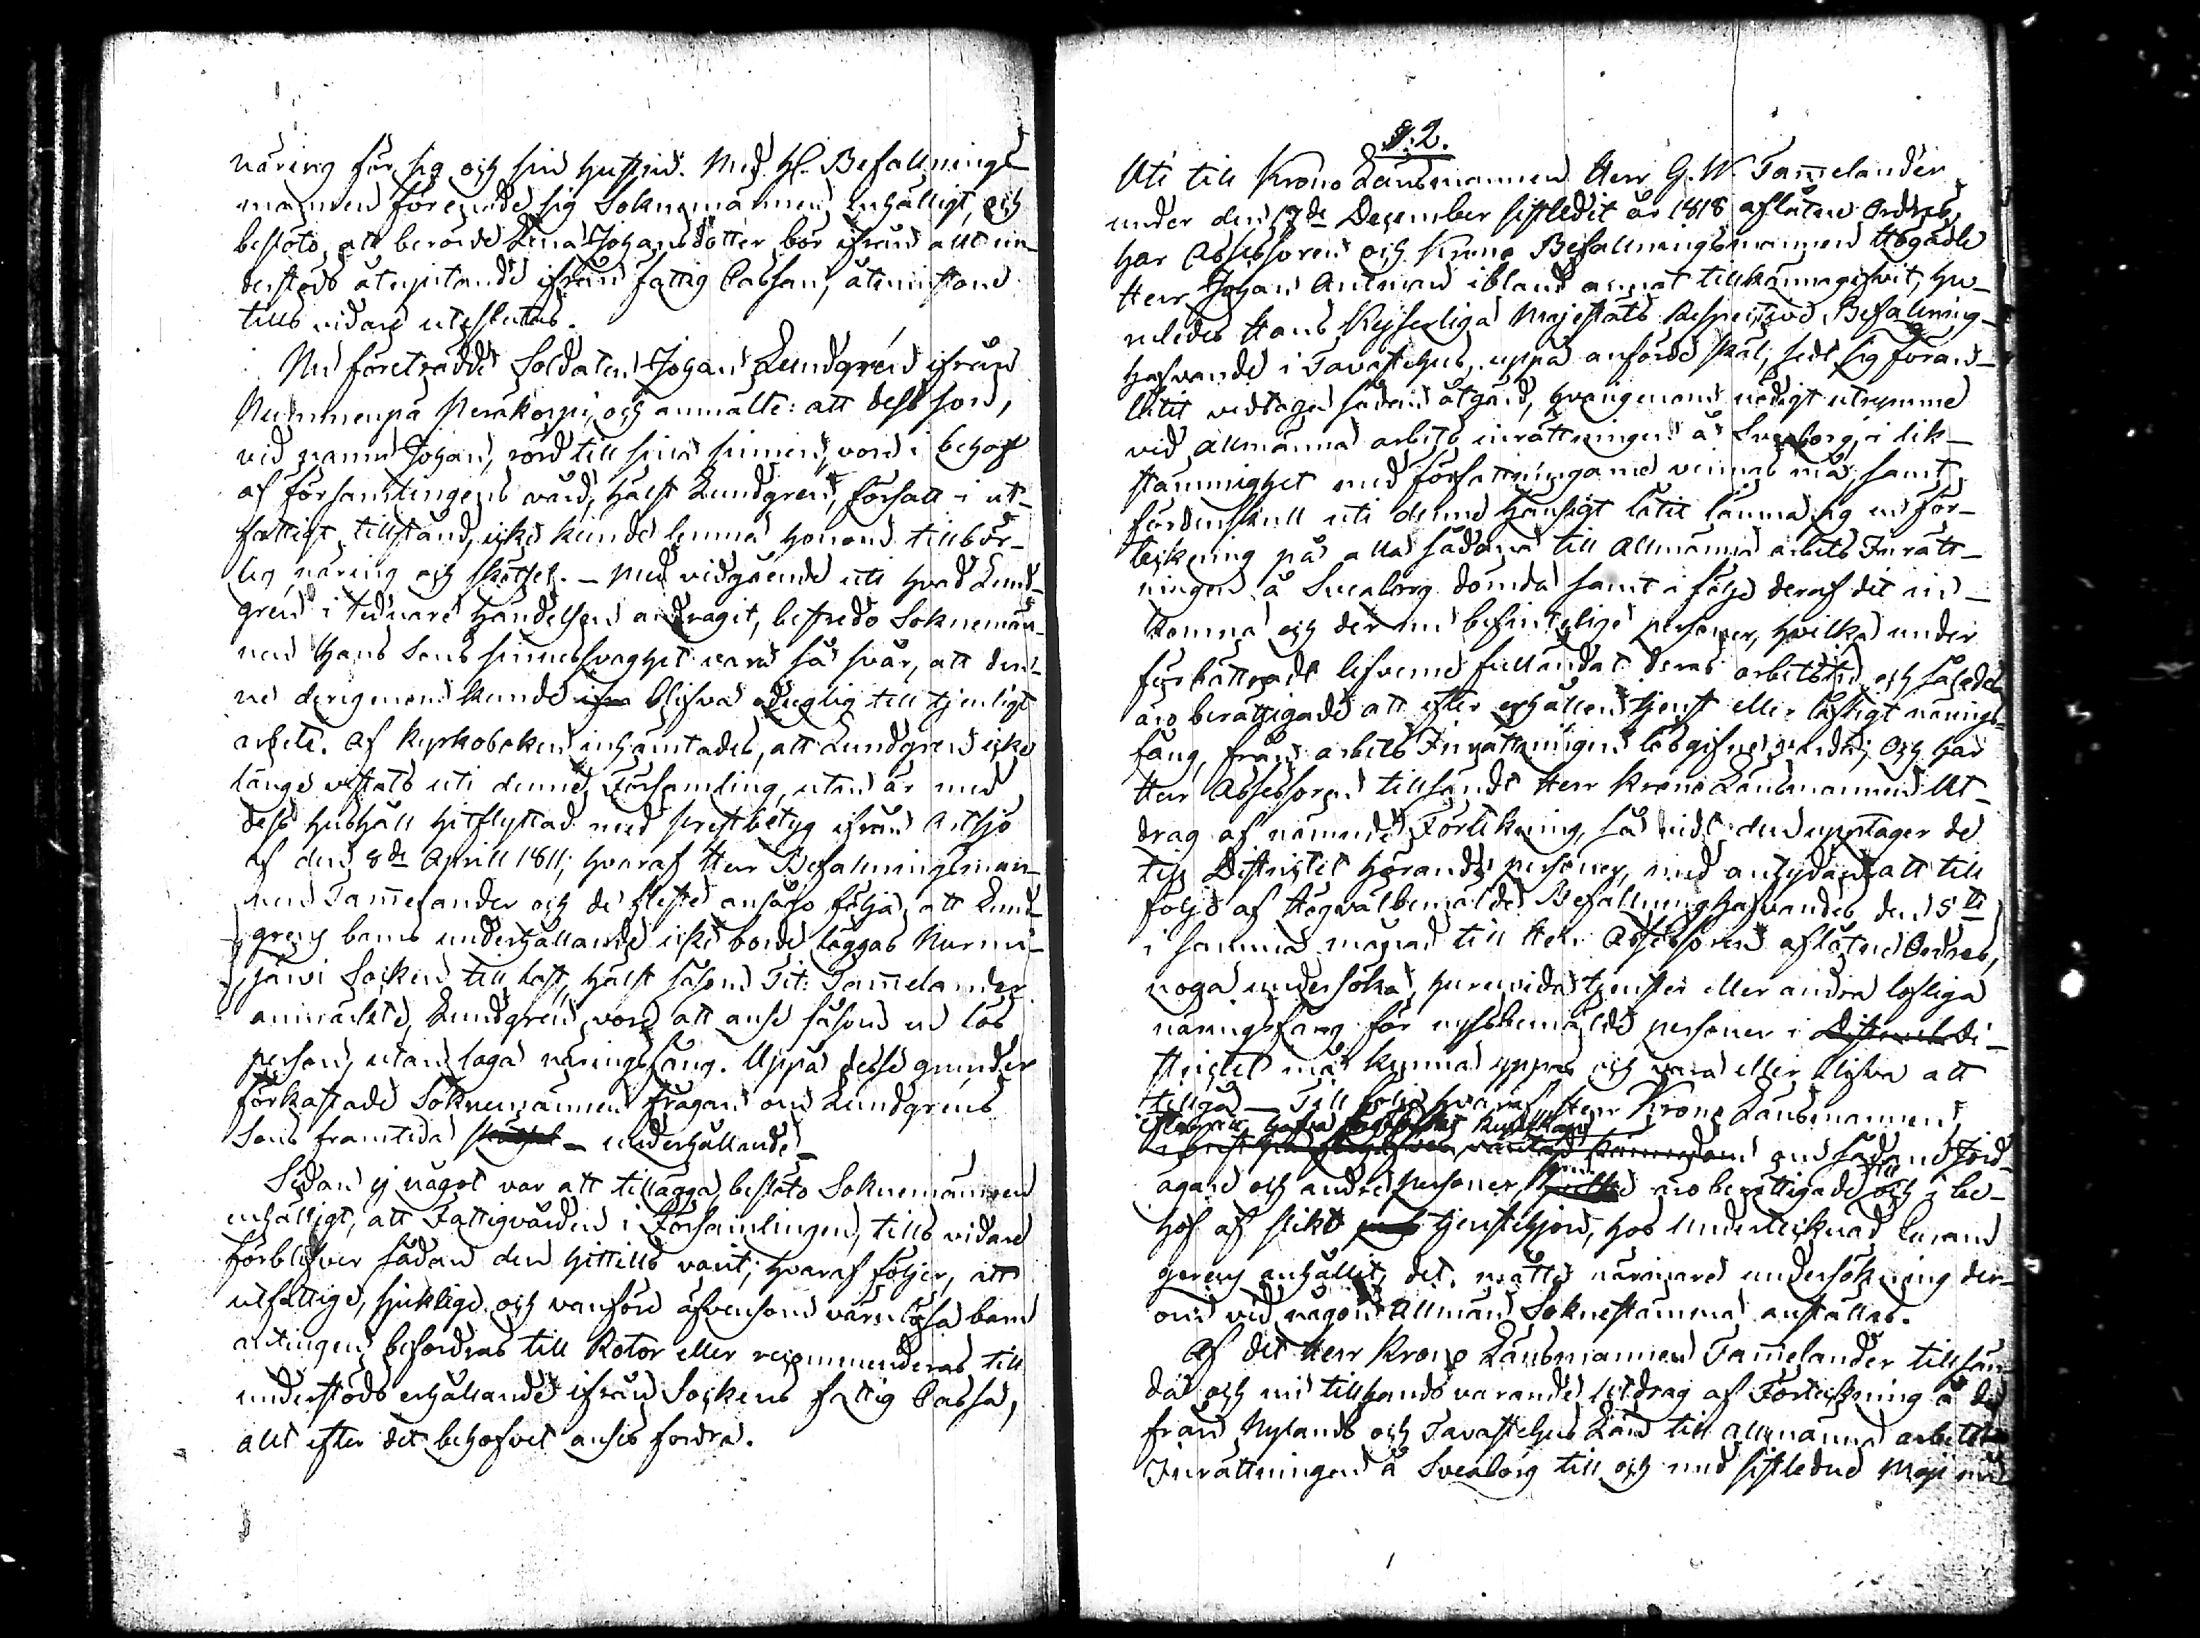 näring för sig och sin hustru. Med H. Befallnings-
mannen förenade sig Soknemännen enhälligt, och
besloto, att berörde Lena Johansdotter bör ifrån allt un-
derstöds åtnjutande ifrån fattig Cassan, åtminstone
tills vidare uteslutas.
Nu företrädde Soldaten Johan Lundgren ifrån
Nummenpä Peräkorpi, och anmälte: att dess son,
vid namn Johan, rörd till sina sinnen, vore i behof
af församlingens vård, hälst Lundgren, försatt i ut-
fattigt tillstånd, icke kunde lemna honom tillbör-
lig näring och skötsel. – Med vidgående uti hvad Lund-
gren i tidnare händelsen andragit, bestredo Soknemän-
nen Hans Sons sinnessvaghet vara så svår, att den-
ne derigenom kunde blifva oduglig till tjenligt
arbete. Af Kyrkoboken inhämtades, att Lundgren icke
länge vistats uti denne Församling, utan är med
dess hushåll hitflyttad med prestbetyg ifrån Artsjö
af den 8de Aprill 1811; hvaraf Herr Befallningsman-
nen Tam̄elander och de fleste ansågo följa, att Lund-
grens barns underhållande icke borde läggas Nurmi-
järvi Socken till last, hälst såsom Tit: Tam̄elander
anmärkte, Lundgren vore att anse såsom en lös
person, utan laga näringsfång. Uppå desse grunder
förkastade Soknemännen frågan om Lundgrens
Sons framtida underhållande –
Sedan ej något var att tillägga, besloto Soknemännen
enhälligt, att Fattigvården i Församlingen, tills vidare
förblifver sådan den hittills varit; hvaraf följer, att
utfattige, sjuklige och vanföre äfvensom värnlösa barn
antingen befordras till Rotor eller recommenderas till
understöds erhållande ifrån Sockens fattig Cassa,
allt efter det behofvet anses fordra.
§. 2.
Uti till Krono Länsmannen Herr G. W. Tam̄elander
under den 17de December sistledit år 1818 aflåten Ordres,
har Assessoren och Krono Befallningsmannen Högädle
Herr Johan Antman ibland annat tillkännagifvit, hu-
ruledes Hans Kejserliga Majestäts Respective Befallning-
hafvande i Tavastehus, uppå anförde skäl, sedt sig föran-
låtit vidtaga sådan åtgärd, hvarigenom nödigt utrymme
vid allmänna arbets inrättningen å Sveaborg, i lik-
stämmighet med författningarne vinnas må, samt
fördenskull uti denne hänsigt låtit lämna sig en för-
teckning på alla sådana till Allmänna arbets Inrätt-
ningen å Sveaborg dömda samt i följe deraf dit in-
komna och der nu befintelige personer, hvilka under
förbättradt lefverne fulländat deras arbetstid och således
äro berättigade att efter erhållen tjenst eller lofligt närings-
fång, från arbets Inrättningen lösgifne varda; Och har
Herr Assessoren tillsändt Herr Krono Länsmannen Ut-
drag af nämnde Förtekning, så vidt den upptager de
till Districtet hörande personer, med antydan att till
följe af Högvälbemälde Befallninghafvandes den 5te
i samma månad till Herr Assessoren aflåtne Ordres,
noga undersöka, huruvida tjenster eller andra lofliga
näringsfång för nyssbemälde personer i Di-
strictet må kunna yppas och vara eller blifva att
tillgå – Till följe hvaraf Herr Krono Länsmannen,
om sådane Jord-
ägare och andre personer, som äro berättigade till och i be-
hof af slikt tjenstehjon, hos Undertecknad
anhållit, det måtte närmare undersökning der-
om vid någon Allmän Soknestämma anställas.
Af det Herr Krono Länsmannen Tam̄elander tillsän-
da och nu tillhands varande Utdrag af Förteckning å de
från Nylands och Tavastehus Län till allmänna arbets
Inrättningen å Sveaborg till och med sistledne Maji